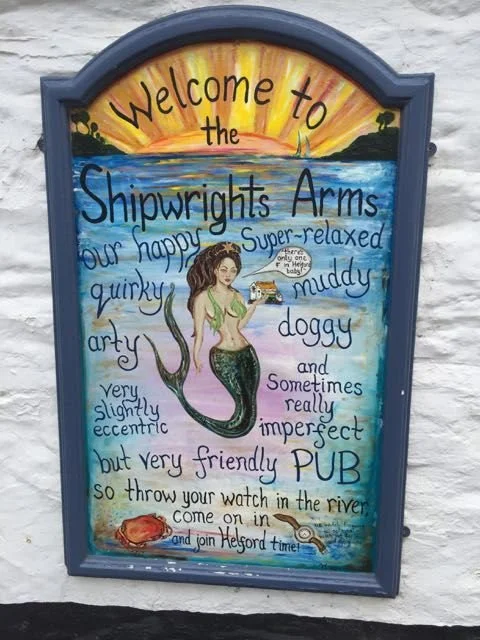 Welcome to
the
Shipwrights Arms
our happy Super-relaxed
quirky muddy
there's
only one
in Helford
baby!
arty doggy
very
slightly
eccentric
and
Sometimes
really
imperfect
but very friendly PUB
so throw your watch in the river,
come on in
and join Helford time!